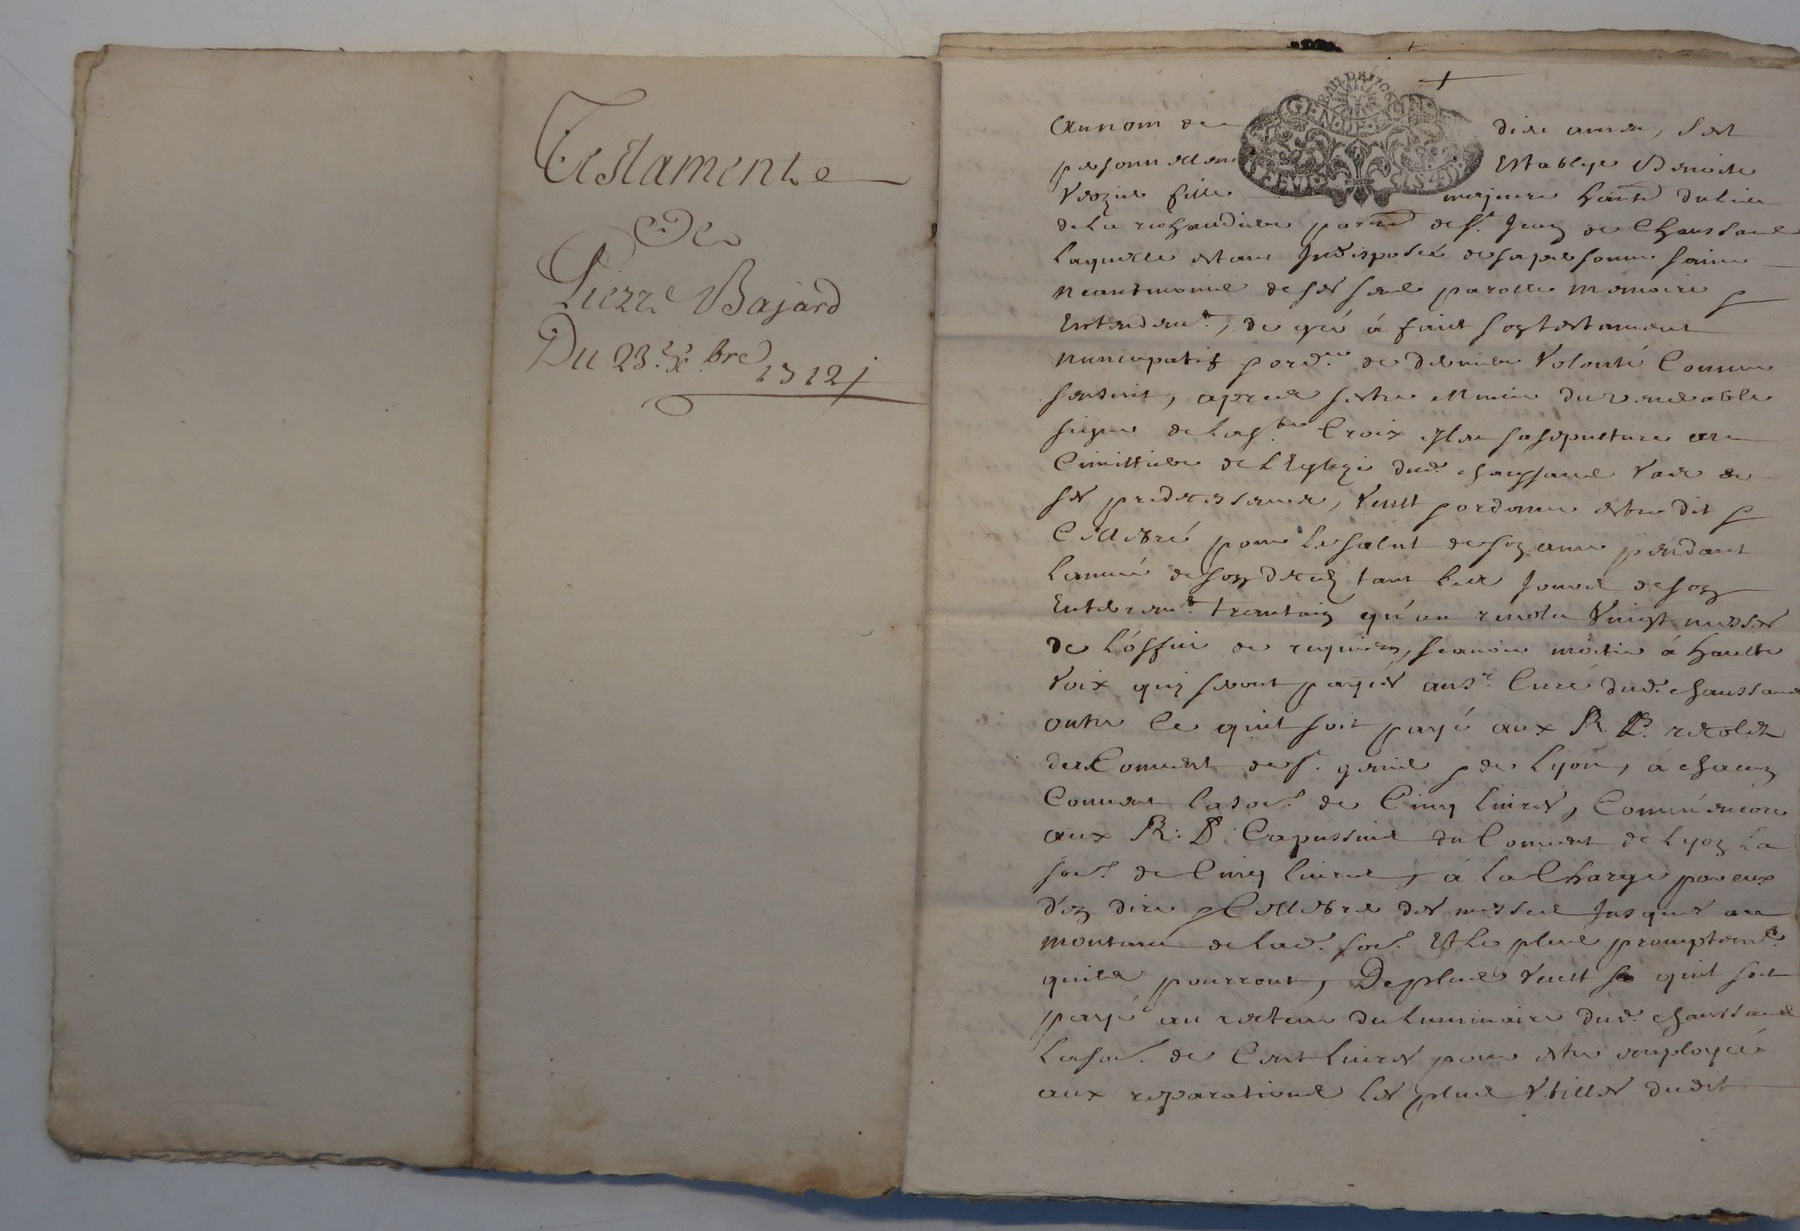 Testament
De
Pierre Bajard
Du 23e xbre 1712
Au nom de dieu amen, soit
personnellem establye Benoite
Verzie fille majeure hante du lieu
de la richaudiere parse de St Jean de Chaussant
laquelle estant Indisposée de sa personne saine
neantmoins de ses sens parolle memoire &
Entendemt, de gré à faict son testament
nuncupatif & ordre de derniere volonté Comme
sensuit, apres sestre Munie du venerable
signe de la ste Croix Eslu sa sepulture au
Cimittiere de L'Eglize dud. chaussant
ses predecesseurs, veult & ordonne estre dit &
Cellebré pour le salut de son ame pendant
lannée de son deced tant les Jours de son
Enterremt trentain qu'au vingt messes
de L'office de requiem, scavoir moitié à haulte
voix quy seront payés au sr. Curé dud. chaussant
outre ce quil soit payé aux R P. recoletz
des Couvent de St. genis & de Lyon, à chacun
Couvent la som. de Cinq livres, Comme encore
aux R: P Capussins du Couvent de Lyon La
som. de Cinq livres, à la Charge par eux
d'en dire & Cellebrer des messes Jusques au
montant de lad. som. Et le plus promptemt.
quils pourront, De plus veult quil soit
payé au recteur du luminaire dud. chaussant
La som. de Cent livres pour estre employée
aux reparations les plus utilles dudit